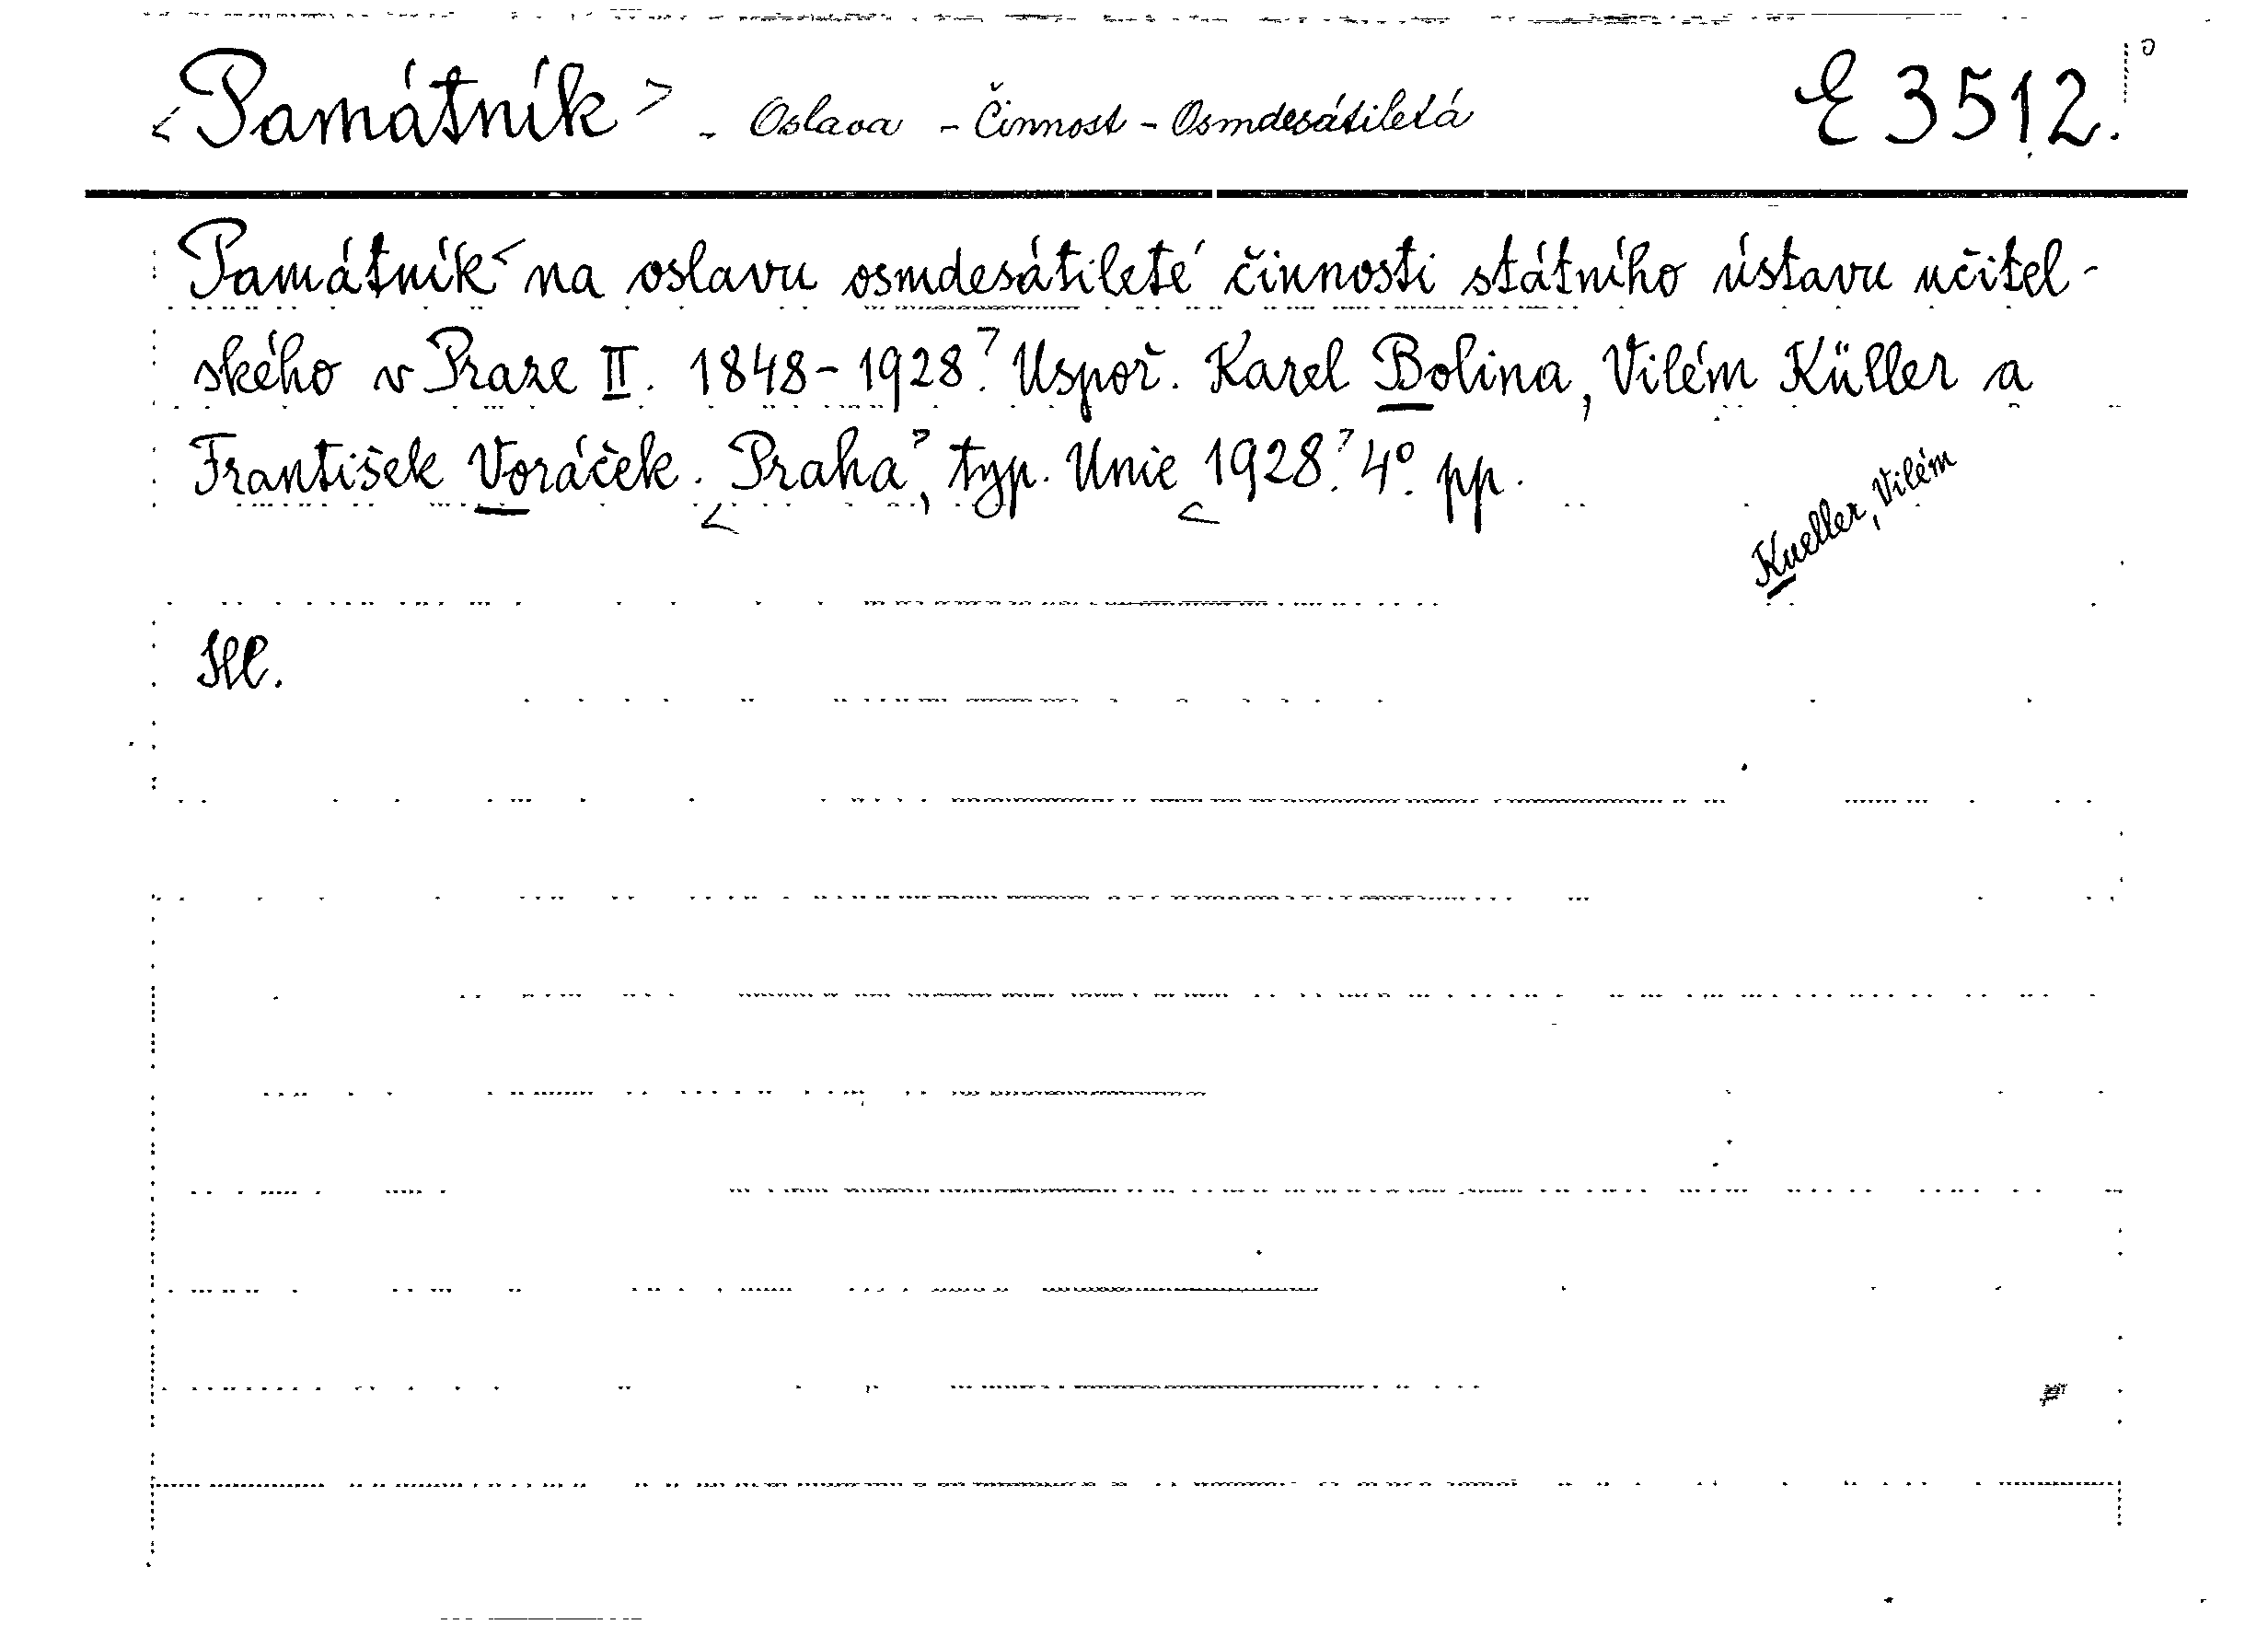 <Památník> - Oslava - Činnost - Osmdesátiletá E 3512.
Památník < na oslavu osmdesátileté činnosti státního ústavu učitel-
ského v Praze II. 1848-1928.> Uspoř. Karel Bolina, Vilém Küller a
František Voráček. <Praha>, typ. Unie <1928.> 4° pp.
Kueller, Vilém